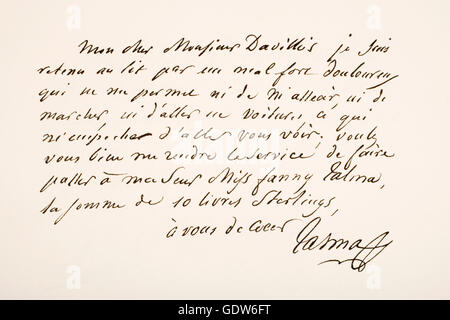 Mon cher Monsieur Davillis je suis
retenu au lit par un mal fort douloureux
qui ne me permet ni de m'asseoir, ni de
marcher, ni d'aller en voiture, ce qui
m'empecher d'aller vous voir. voulez
vous bien me rendre le service de faire
passer à ma seur Miss fanny Talma,
la somme de 10 livres Sterlings,
à vous de cœur Talma
alamy
Image ID: GDW6FT
www.alamy.com